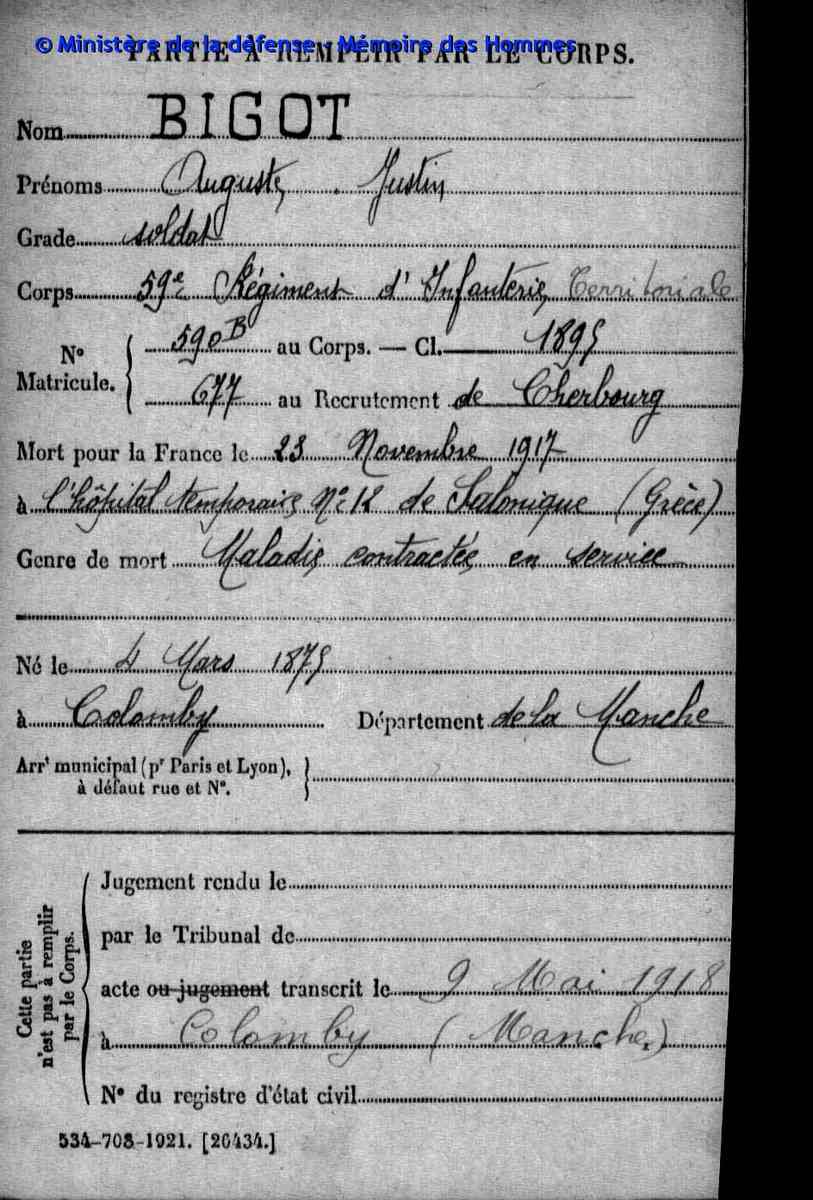 © Ministère de la défense - Mémoire des Hommes
PARTIE À REMPLIR PAR LE CORPS.
Nom BIGOT
Prénoms Auguste, Justin
Grade soldat
Corps 59e Régiment d'Infanterie Territoriale
N° Matricule. 590 B au Corps. — Cl. 1895
677 au Recrutement de Cherbourg
Mort pour la France le 23 Novembre 1917
à l'hôpital temporaire N° 12 de Salonique (Grèce)
Genre de mort Maladie contractée en service
Né le 4 Mars 1875
à Colomby Département de la Manche
Arrt municipal (pr Paris et Lyon),
à défaut rue et N°.
Cette partie
n'est pas à remplir
par le Corps.
Jugement rendu le
par le Tribunal de
acte ou jugement transcrit le 9 Mai 1918
à Colomby (Manche.)
N° du registre d'état civil
534-708-1921. [26434.]